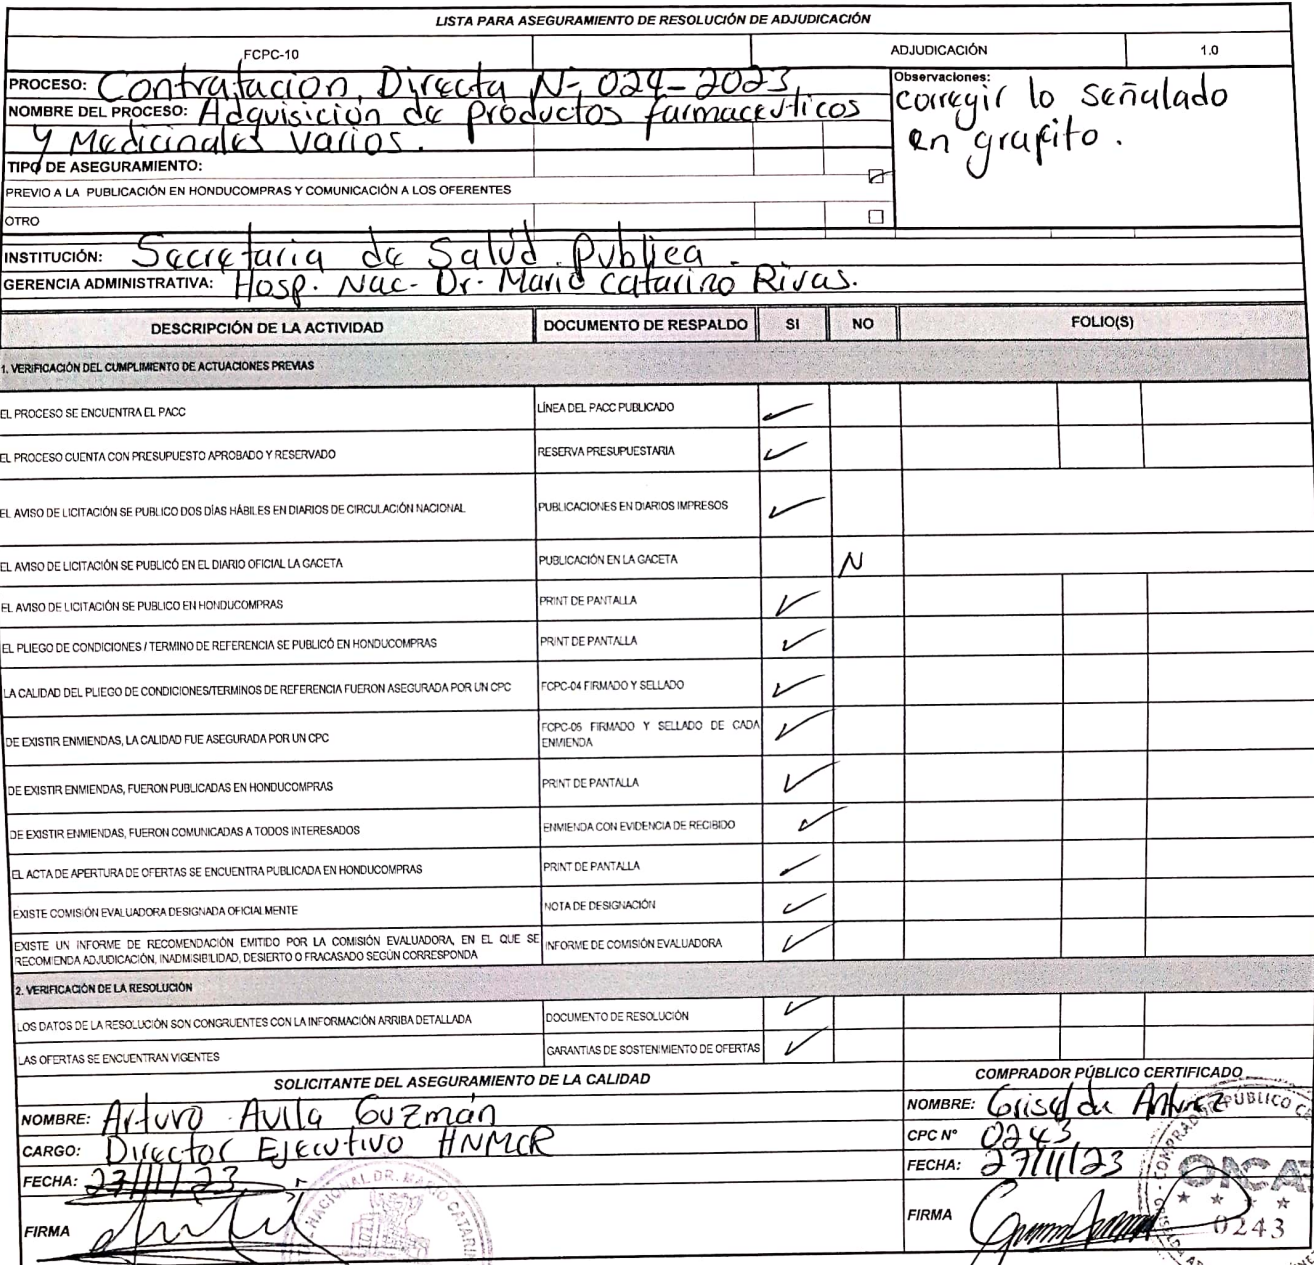 LISTA PARA ASEGURAMIENTO DE RESOLUCIÓN DE ADJUDICACIÓN
FCPC-10 ADJUDICACIÓN 1.0
PROCESO: Contratación Directa N- 024-2023
NOMBRE DEL PROCESO: Adquisición de productos farmaceuticos
y Medicinales varios.
Observaciones:
corregir lo señalado
en grafito.
TIPO DE ASEGURAMIENTO:
PREVIO A LA PUBLICACIÓN EN HONDUCOMPRAS Y COMUNICACIÓN A LOS OFERENTES ☑
OTRO ☐
INSTITUCIÓN: Secretaria de Salud Publica.
GERENCIA ADMINISTRATIVA: Hosp. Nac. Dr. Mario Catarino Rivas.
DESCRIPCIÓN DE LA ACTIVIDAD DOCUMENTO DE RESPALDO SI NO FOLIO(S)
1. VERIFICACIÓN DEL CUMPLIMIENTO DE ACTUACIONES PREVIAS
EL PROCESO SE ENCUENTRA EL PACC LÍNEA DEL PACC PUBLICADO ✓
EL PROCESO CUENTA CON PRESUPUESTO APROBADO Y RESERVADO RESERVA PRESUPUESTARIA ✓
EL AVISO DE LICITACIÓN SE PUBLICO DOS DÍAS HÁBILES EN DIARIOS DE CIRCULACIÓN NACIONAL PUBLICACIONES EN DIARIOS IMPRESOS ✓
EL AVISO DE LICITACIÓN SE PUBLICÓ EN EL DIARIO OFICIAL LA GACETA PUBLICACIÓN EN LA GACETA N
EL AVISO DE LICITACIÓN SE PUBLICO EN HONDUCOMPRAS PRINT DE PANTALLA ✓
EL PLIEGO DE CONDICIONES / TERMINO DE REFERENCIA SE PUBLICÓ EN HONDUCOMPRAS PRINT DE PANTALLA ✓
LA CALIDAD DEL PLIEGO DE CONDICIONES/TERMINOS DE REFERENCIA FUERON ASEGURADA POR UN CPC FCPC-04 FIRMADO Y SELLADO ✓
DE EXISTIR ENMIENDAS, LA CALIDAD FUE ASEGURADA POR UN CPC FCPC-05 FIRMADO Y SELLADO DE CADA ENMIENDA ✓
DE EXISTIR ENMIENDAS, FUERON PUBLICADAS EN HONDUCOMPRAS PRINT DE PANTALLA ✓
DE EXISTIR ENMIENDAS, FUERON COMUNICADAS A TODOS INTERESADOS ENMIENDA CON EVIDENCIA DE RECIBIDO ✓
EL ACTA DE APERTURA DE OFERTAS SE ENCUENTRA PUBLICADA EN HONDUCOMPRAS PRINT DE PANTALLA ✓
EXISTE COMISIÓN EVALUADORA DESIGNADA OFICIALMENTE NOTA DE DESIGNACIÓN ✓
EXISTE UN INFORME DE RECOMENDACIÓN EMITIDO POR LA COMISIÓN EVALUADORA, EN EL QUE SE
RECOMIENDA ADJUDICACIÓN, INADMISIBILIDAD, DESIERTO O FRACASADO SEGÚN CORRESPONDA INFORME DE COMISIÓN EVALUADORA ✓
2. VERIFICACIÓN DE LA RESOLUCIÓN
LOS DATOS DE LA RESOLUCIÓN SON CONGRUENTES CON LA INFORMACIÓN ARRIBA DETALLADA DOCUMENTO DE RESOLUCIÓN ✓
LAS OFERTAS SE ENCUENTRAN VIGENTES GARANTIAS DE SOSTENIMIENTO DE OFERTAS ✓
SOLICITANTE DEL ASEGURAMIENTO DE LA CALIDAD
NOMBRE: Arturo Avila Guzmán
CARGO: Director Ejecutivo HNMCR
FECHA: 27/11/23
FIRMA
COMPRADOR PÚBLICO CERTIFICADO
NOMBRE: Griselda Antunez
CPC N° 0243
FECHA: 27/11/23
FIRMA
NACIONAL DR. MARIO CATARI
COMPRADOR PUBLICO
ONCA
0243